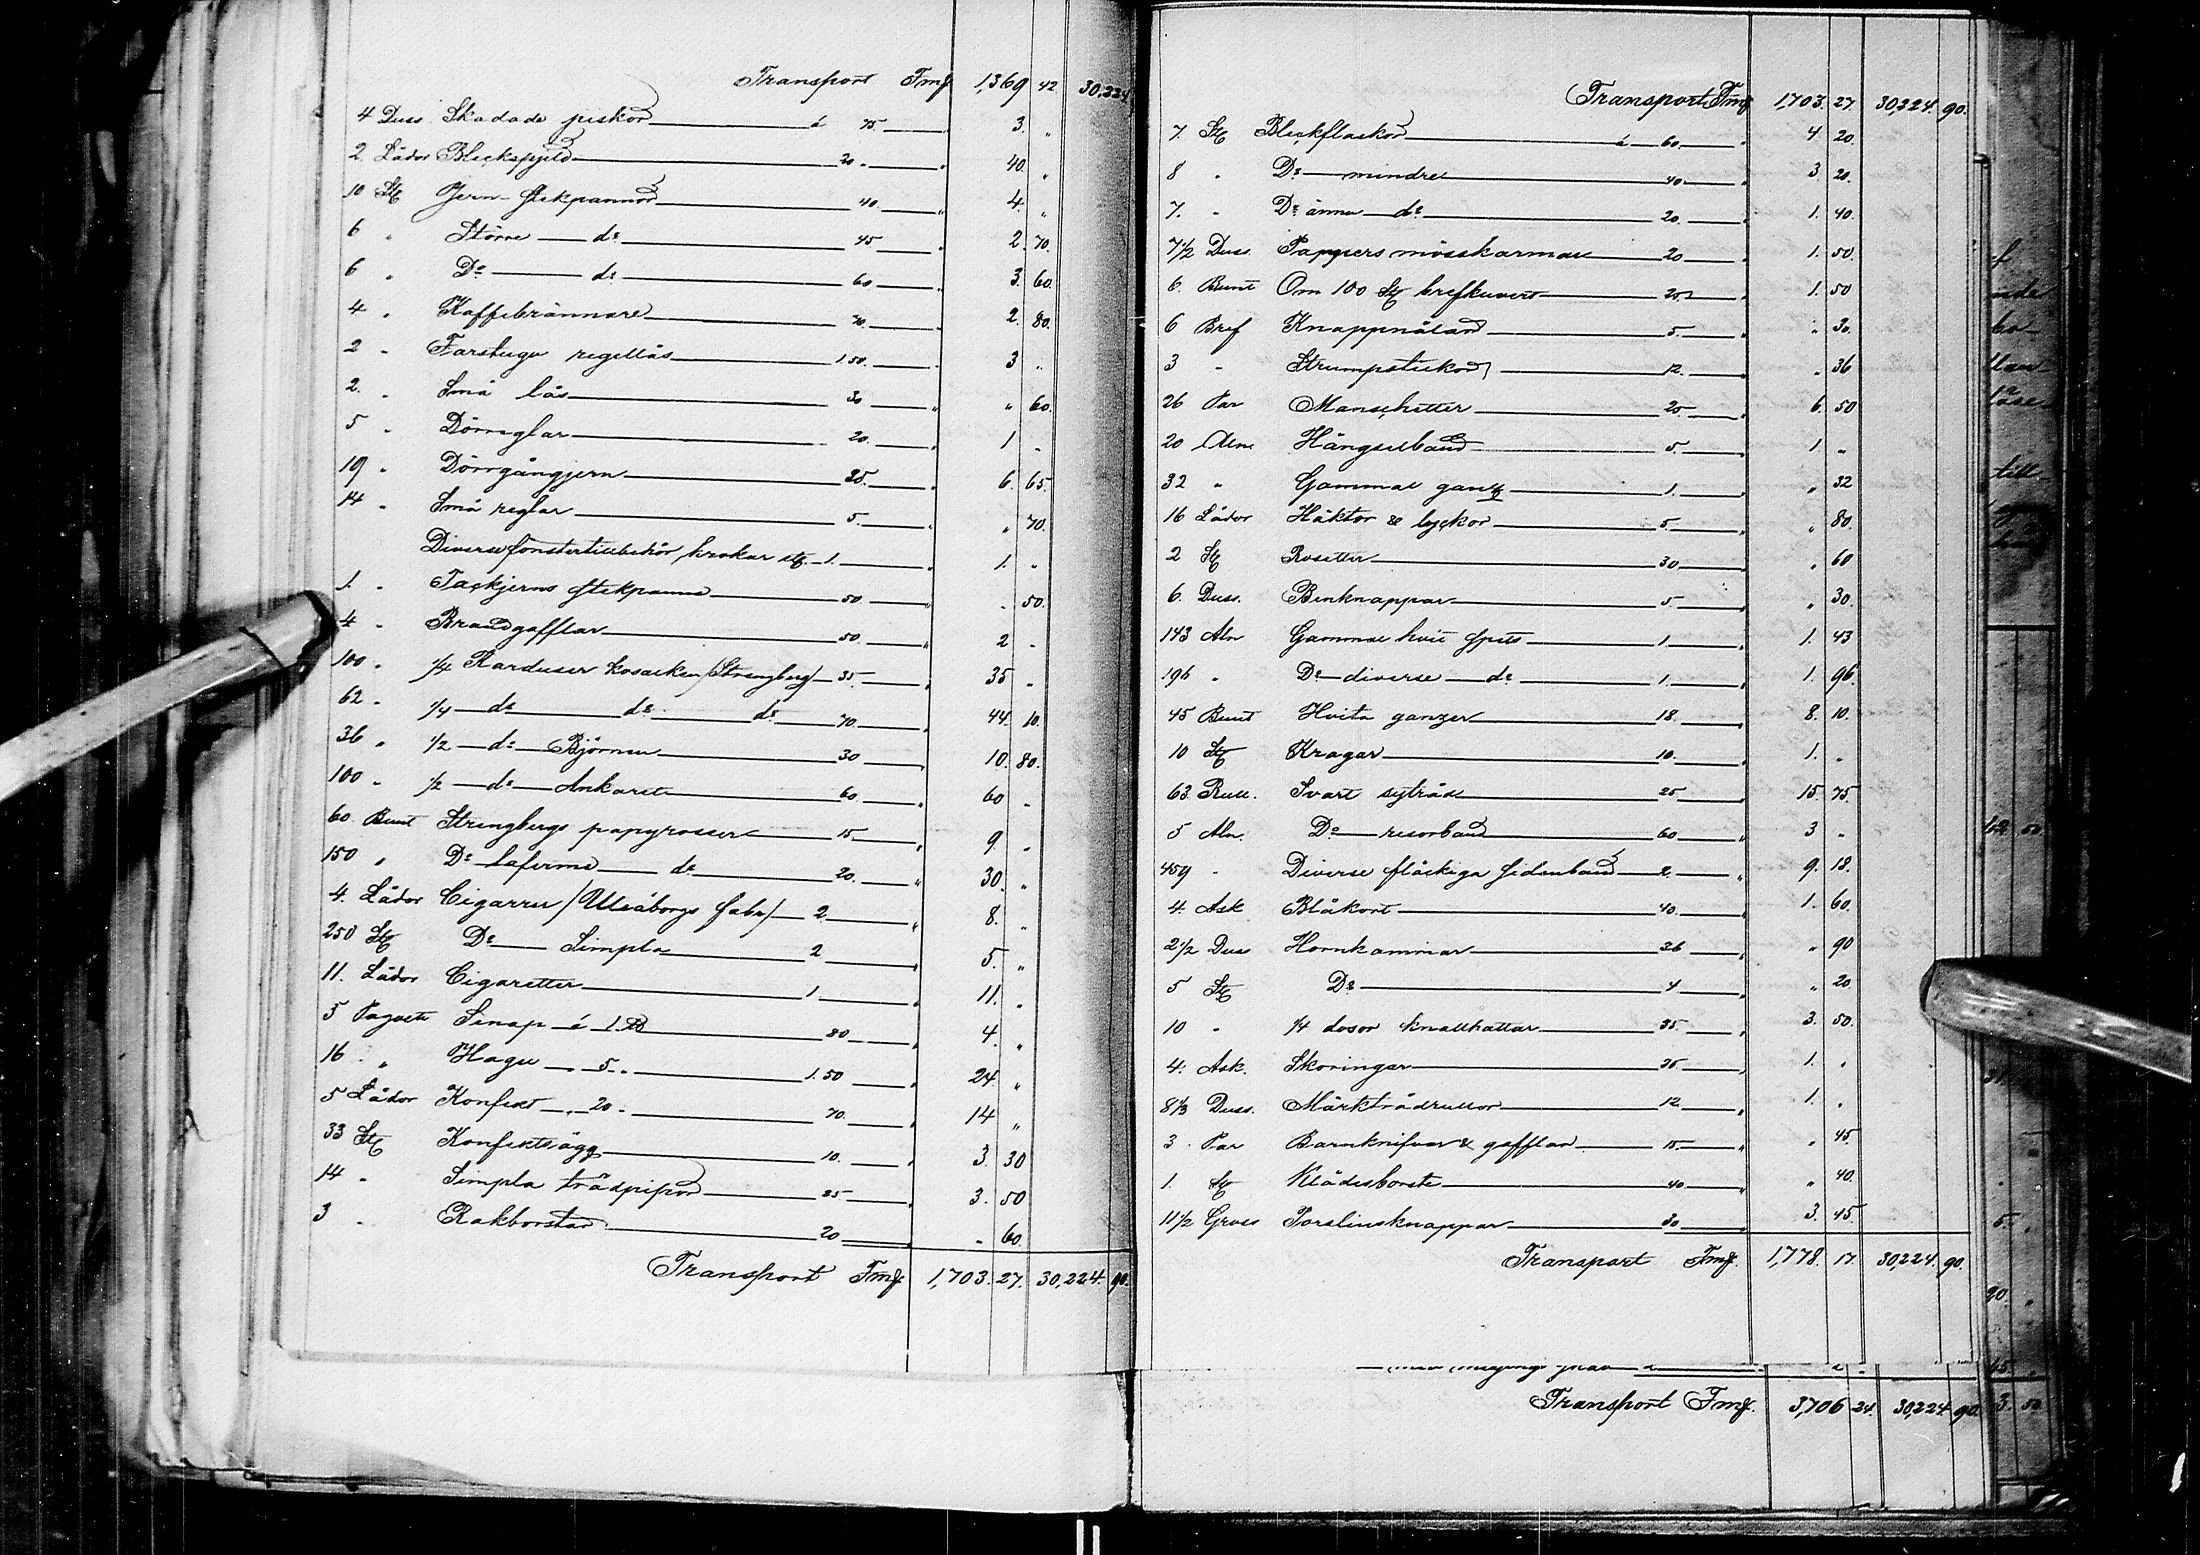 Transport Fmk 1,369 42 30,224
4 Duss Skadade piskor á 75 3. "
2. Lådor Bleckspjeld 20 40. "
10 St. Jern-stekpannor 40. 4. "
6 " Större do 45 2. 70.
6 " Do do 60 3. 60.
4 " Kaffebrännare 70. 2. 80.
2 " Farstugu regellås 1.50. 3 "
2. " Små lås 30 " 60.
5 " Dörreglar 20. 1 "
19 " Dörrgångjern 35. 6. 65.
14 " Små reglar 5. " 70.
Diverse fönstertillbehör, krokar etc. 1. 1. "
1. " Tackjerns stekpanna 50. " 50.
4 " Brandgafflar 50. 2 "
100 " 1/4 Karduser kosacken /Strengberg/ 35. 35 "
62 " 1/4 do do do 70. 44. 10.
36 " 1/2 do Björnen 30 10. 80.
100 " 1/2 do Ankaret 60 60 "
60 Bunt Strengbergs papyrosser 15. 9. "
150 " Do laferme do 20. 30. "
4. Lådor Cigarrer /Uleåborgs fabr/ 2 8. "
250 St. Do Simpla 2 5. "
11. Lådor Cigaretter 1 11. "
5 Paquete Senap á 1 ℔ 80 4. "
16 " Hagel " 5 " 1.50 24. "
5 Lådor Konfekt " 20 " 70. 14 "
33 St. Konfektsägg 10. 3. 30
14 " Simpla trädpipor 25 3. 50
3 " Rakborstar 20 " 60.
Transport Fmk 1,703. 27. 30,224. 90.
Transport Fmk 1,703. 27. 30,224. 90.
7. St. Bleckflaskor á 60. 4 20.
8 " Do mindre 40 3. 20.
7. " Do ännu do 20. 1. 40.
7 1/2 Duss. Pappers mösskarmar 20 1. 50.
6. Bunt Om 100 St. brefkuvert 25 1. 50
6 Bref Knappnålar 5. " 30.
3 " Strumpstickor 12. " 36
26 Par Manschetter 25 6. 50
20 Aln. Hängselband 5. 1 "
32 " Gammal 1. " 32
16 Lådor Häktor & lyckor 5. " 80.
2 St. Rosetter 30 " 60
6. Duss. Benknappar 5 " 30.
143 Aln Gammal hvit spets 1. 1. 43
196 " Do diverse do 1. 1. 96.
45 Bunt Hvita ganzer 18. 8. 10.
10 St. Kragar 10. 1. "
63 Rull. Svart sytråd 25 15. 75.
5 Aln. Do resorband 60 3 "
459 " Diverse fläckiga sidenband 2. 9. 18.
4. Ask Blåkort 40. 1. 60.
2 1/2 Duss Hornkammar 36 " 90
5 St. Do 4. " 20.
10 " 1/4 dosor knallhattar 35. 3. 50.
4. Ask. Skoringar 25 1. "
8 1/3 Duss. Märktrådrullor 12. 1. "
3. Par Barnknifvar & gafflar 15. " 45
1. St. Klädesborste 40 " 40.
11 1/2 Gross Porslinsknappar 30 3. 45.
Transport Fmk. 1,778. 17. 30,224. 90.
Transport Fmk. 3,706 24. 30,224 90.